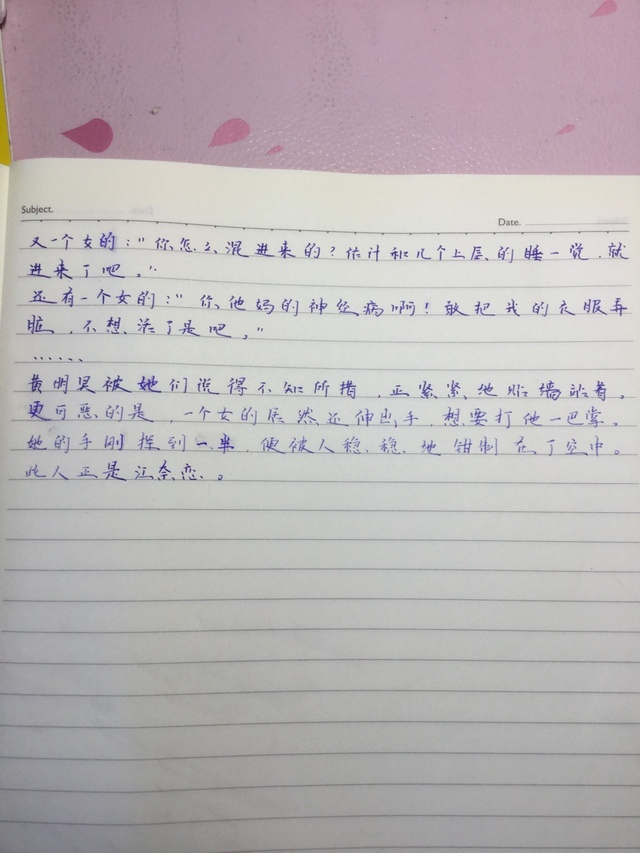 Subject.
Date.
又一个女的："你怎么混进来的？估计和几个上层的睡一觉，就
进来了吧。"
还有一个女的："你他妈的神经病啊！敢把我的衣服弄
脏，不想活了是吧。"
……
黄明昊被她们说得不知所措，正紧紧地贴墙站着。
更可恶的是，一个女的居然还伸出手，想要打他一巴掌。
她的手刚挥到一半，便被人稳稳地钳制在了空中。
此人正是江奈恋。